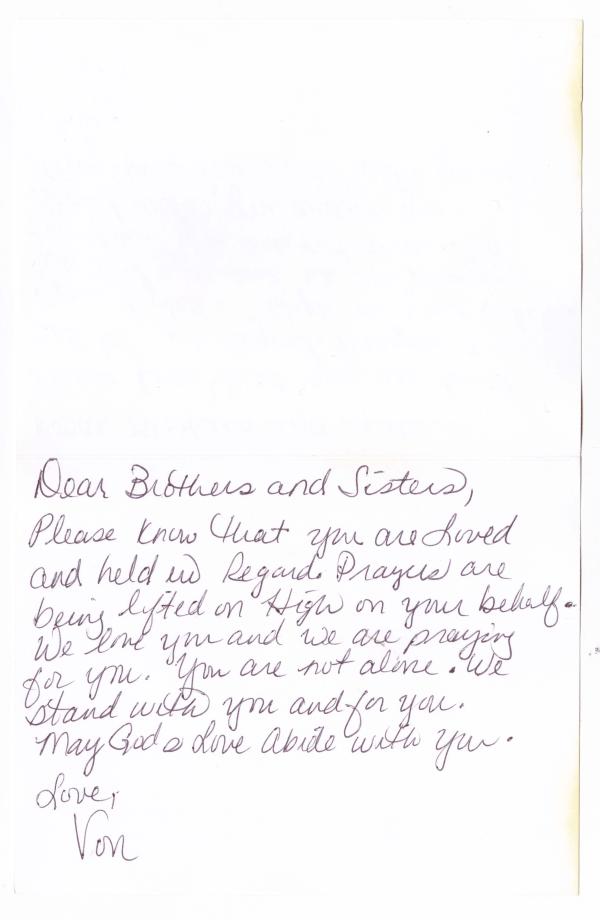 Dear Brothers and Sisters,
Please know that you are Loved
and held in Regard. Prayers are
being lifted on High on your behalf.
We love you and we are praying
for you. You are not alone. We
stand with you and for you.
May Gods Love Abide with you.
Love,
Von